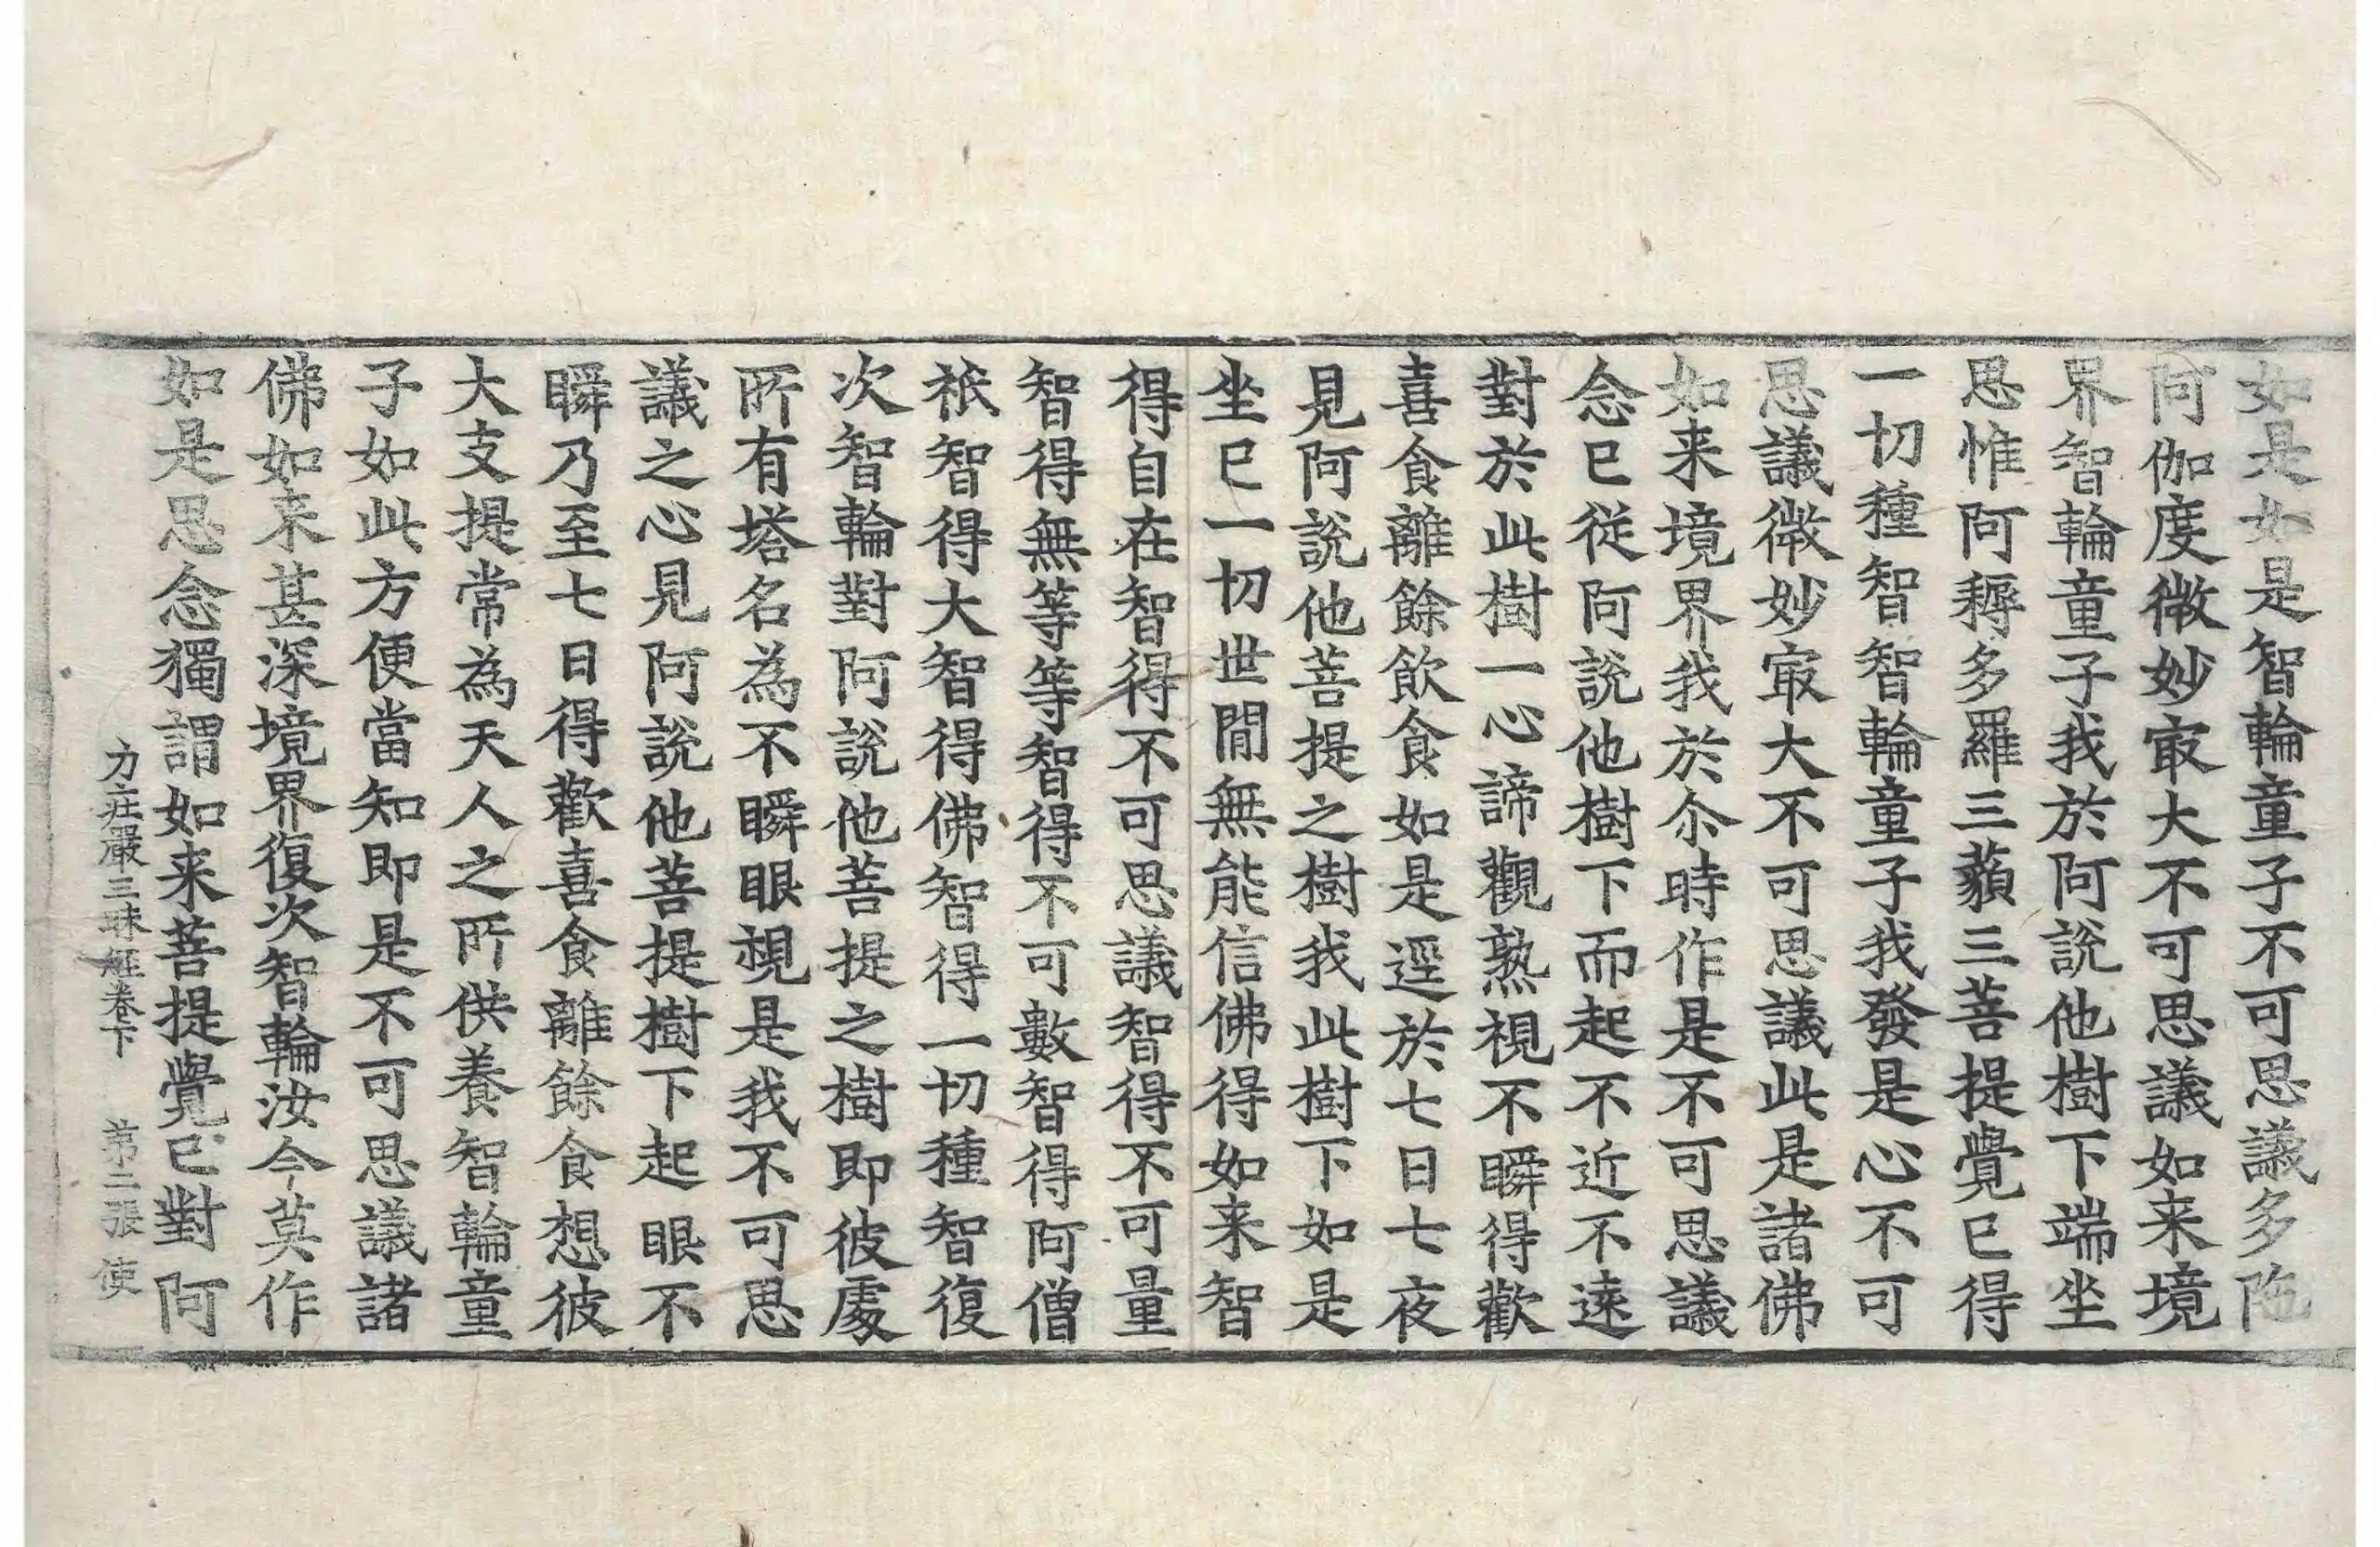 如是如是智輪童子不可思議多陁
阿伽度微妙㝡大不可思議如来境
界智輪童子我於阿說他樹下端坐
思惟阿耨多羅三藐三菩提覺已得
一切種智智輪童子我發是心不可
思議微妙㝡大不可思議此是諸佛
如来境界我於尒時作是不可思議
念已従阿說他樹下而起不近不遠
對於此樹一心諦觀熟視不瞬得歡
喜食離餘飲食如是逕於七日七夜
見阿說他菩提之樹我此樹下如是
坐已一切世間無能信佛得如来智
得自在智得不可思議智得不可量
智得無等等智得不可數智得阿僧
祇智得大智得佛智得一切種智復
次智輪對阿說他菩提之樹即彼處
所有塔名為不瞬眼視是我不可思
議之心見阿說他菩提樹下起眼不
瞬乃至七日得歡喜食離餘食想彼
大支提常為天人之所供養智輪童
子如此方便當知即是不可思議諸
佛如来甚深境界復次智輪汝今莫作
如是思念獨謂如来菩提覺已對阿
力莊嚴三昧經卷下 第二張 使